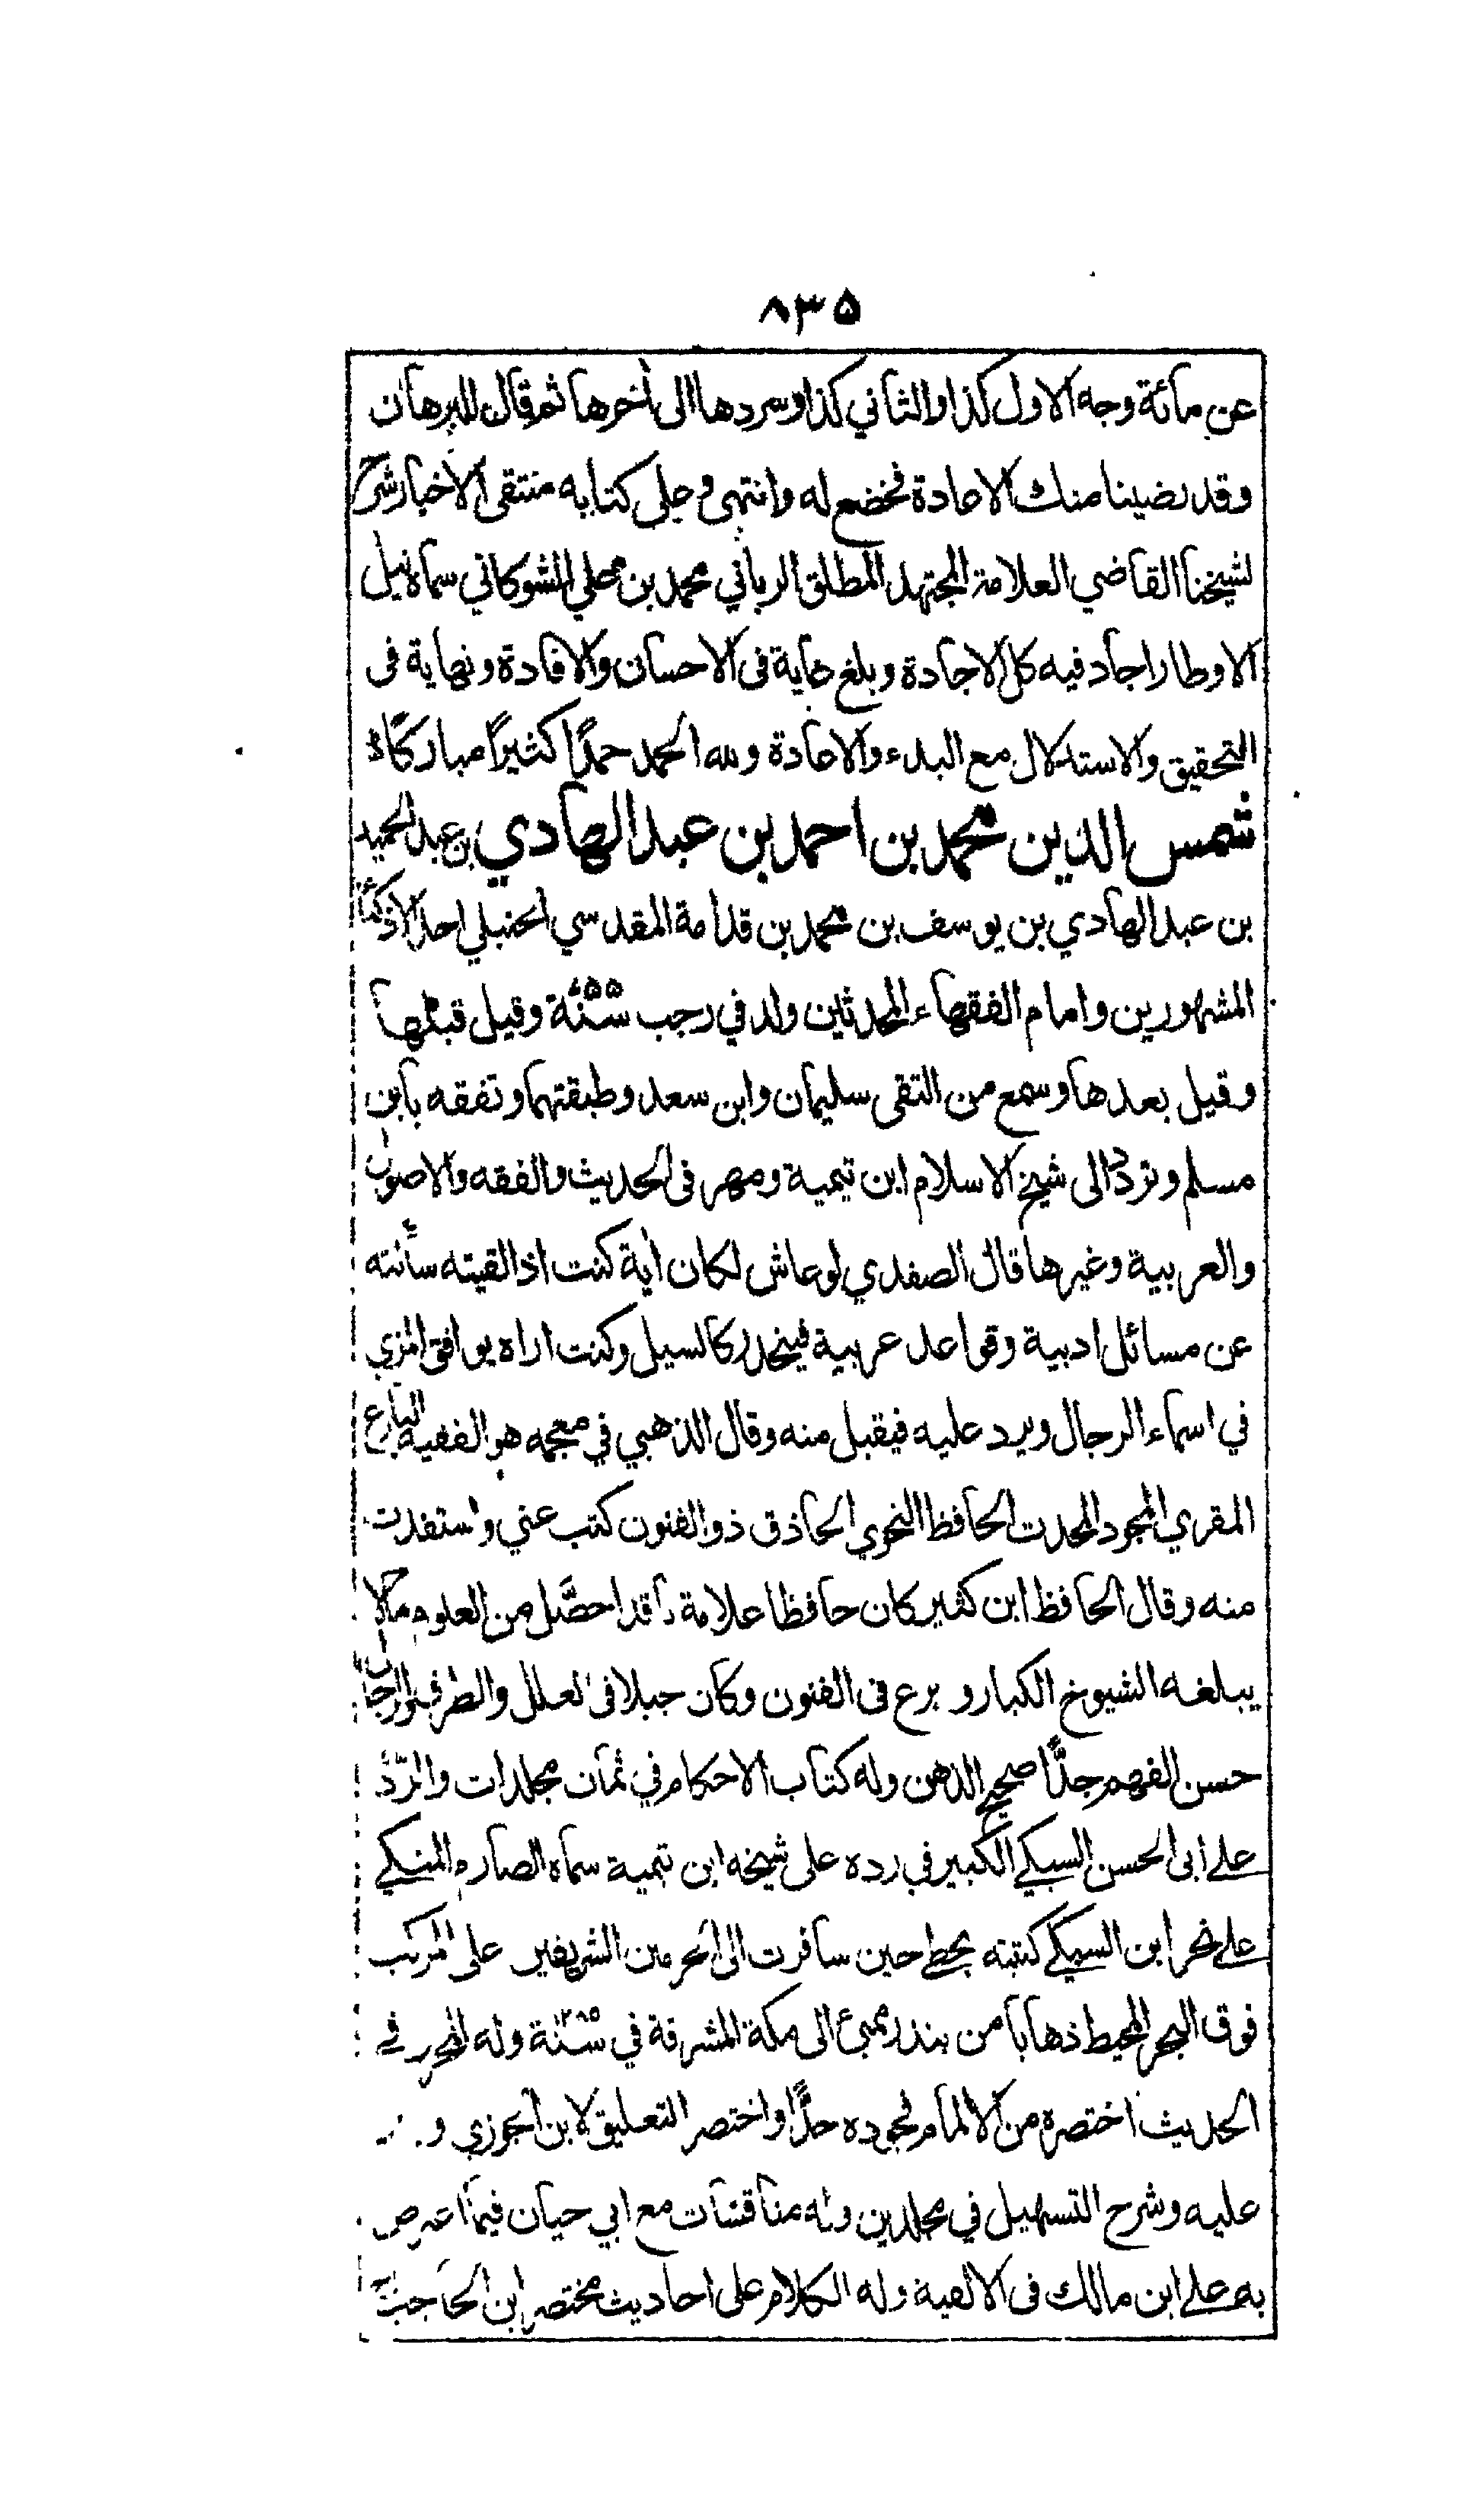 ٨٣٥
عن مائة وجه الاول كذا والثاني كذا وسردها الى أخرها ثم قال للبرهان
وقد رضينا منك الاعادة فخضع له وانتهى وعلى كتابه منتقى الاخبار شرح
لشيخنا القاضي العلامة المجتهد المطلق الرباني محمد بن علي الشوكاني سماه نيل
الاوطار اجاد فيه كل الاجادة وبلغ غاية فى الاحسان والافادة ونهاية فى
التحقيق والاستدلال مع البدء والاعادة ولله الحمد حمدًا كثيرًا مباركًا
شمس الدين محمد بن احمد بن عبد الهادي بن عبد الحميد
بن عبد الهادي بن يوسف بن محمد بن قدامة المقدسي الحنبلي احد الاذكياء
المشهورين وامام الفقهاء المحدثين ولد في رجب سنة وقيل قبلها
وقيل بعدها وسمع من التقى سليمان وابن سعد وطبقتهما وتفقه بابن
مسلم وتردد الى شيخ الاسلام ابن تيمية ومهر فى الحديث والفقه والاصول
والعربية وغيرها قال الصفدي لو عاش لكان أية كنت اذا لقيته سألته
عن مسائل ادبية وقواعد عربية فينحدر كالسيل وكنت اراه يوافق المزي
في اسماء الرجال ويرد عليه فيقبل منه وقال الذهبي في معجمه هو الفقيه البارع
المقري المجود المحدث الحافظ النحوي الحاذق ذو الفنون كتب عني واستفدت
منه وقال الحافظ ابن كثير كان حافظا علامة ناقدا حصَّل من العلوم مالا
يبلغه الشيوخ الكبار وبرع فى الفنون وكان جبلا فى العلل والطرق والرجال
حسن الفهم جدًّا صحيح الذهن وله كتاب الاحكام في ثمان مجلدات والرد
على ابى الحسن السبكي الكبير في رده على شيخه ابن تيمية سماه الصارم المنكي
على نحر ابن السبكي كتبته بخطي حين سافرت الى الحرمين الشريفين على المركب
فوق البحر المحيط ذهابا من بندر بمبئ الى مكة المشرفة في سنة ١٢٨٥ وله المحرر في
الحديث اختصره من الالمام فجوده جدًّا واختصر التعليق لابن الجوزي و
عليه وشرح التسهيل في مجلدين وله مناقشات مع ابي حيان فيما اعترض
به على ابن مالك فى الالفية وله الكلام على احاديث مختصر ابن الحاجب